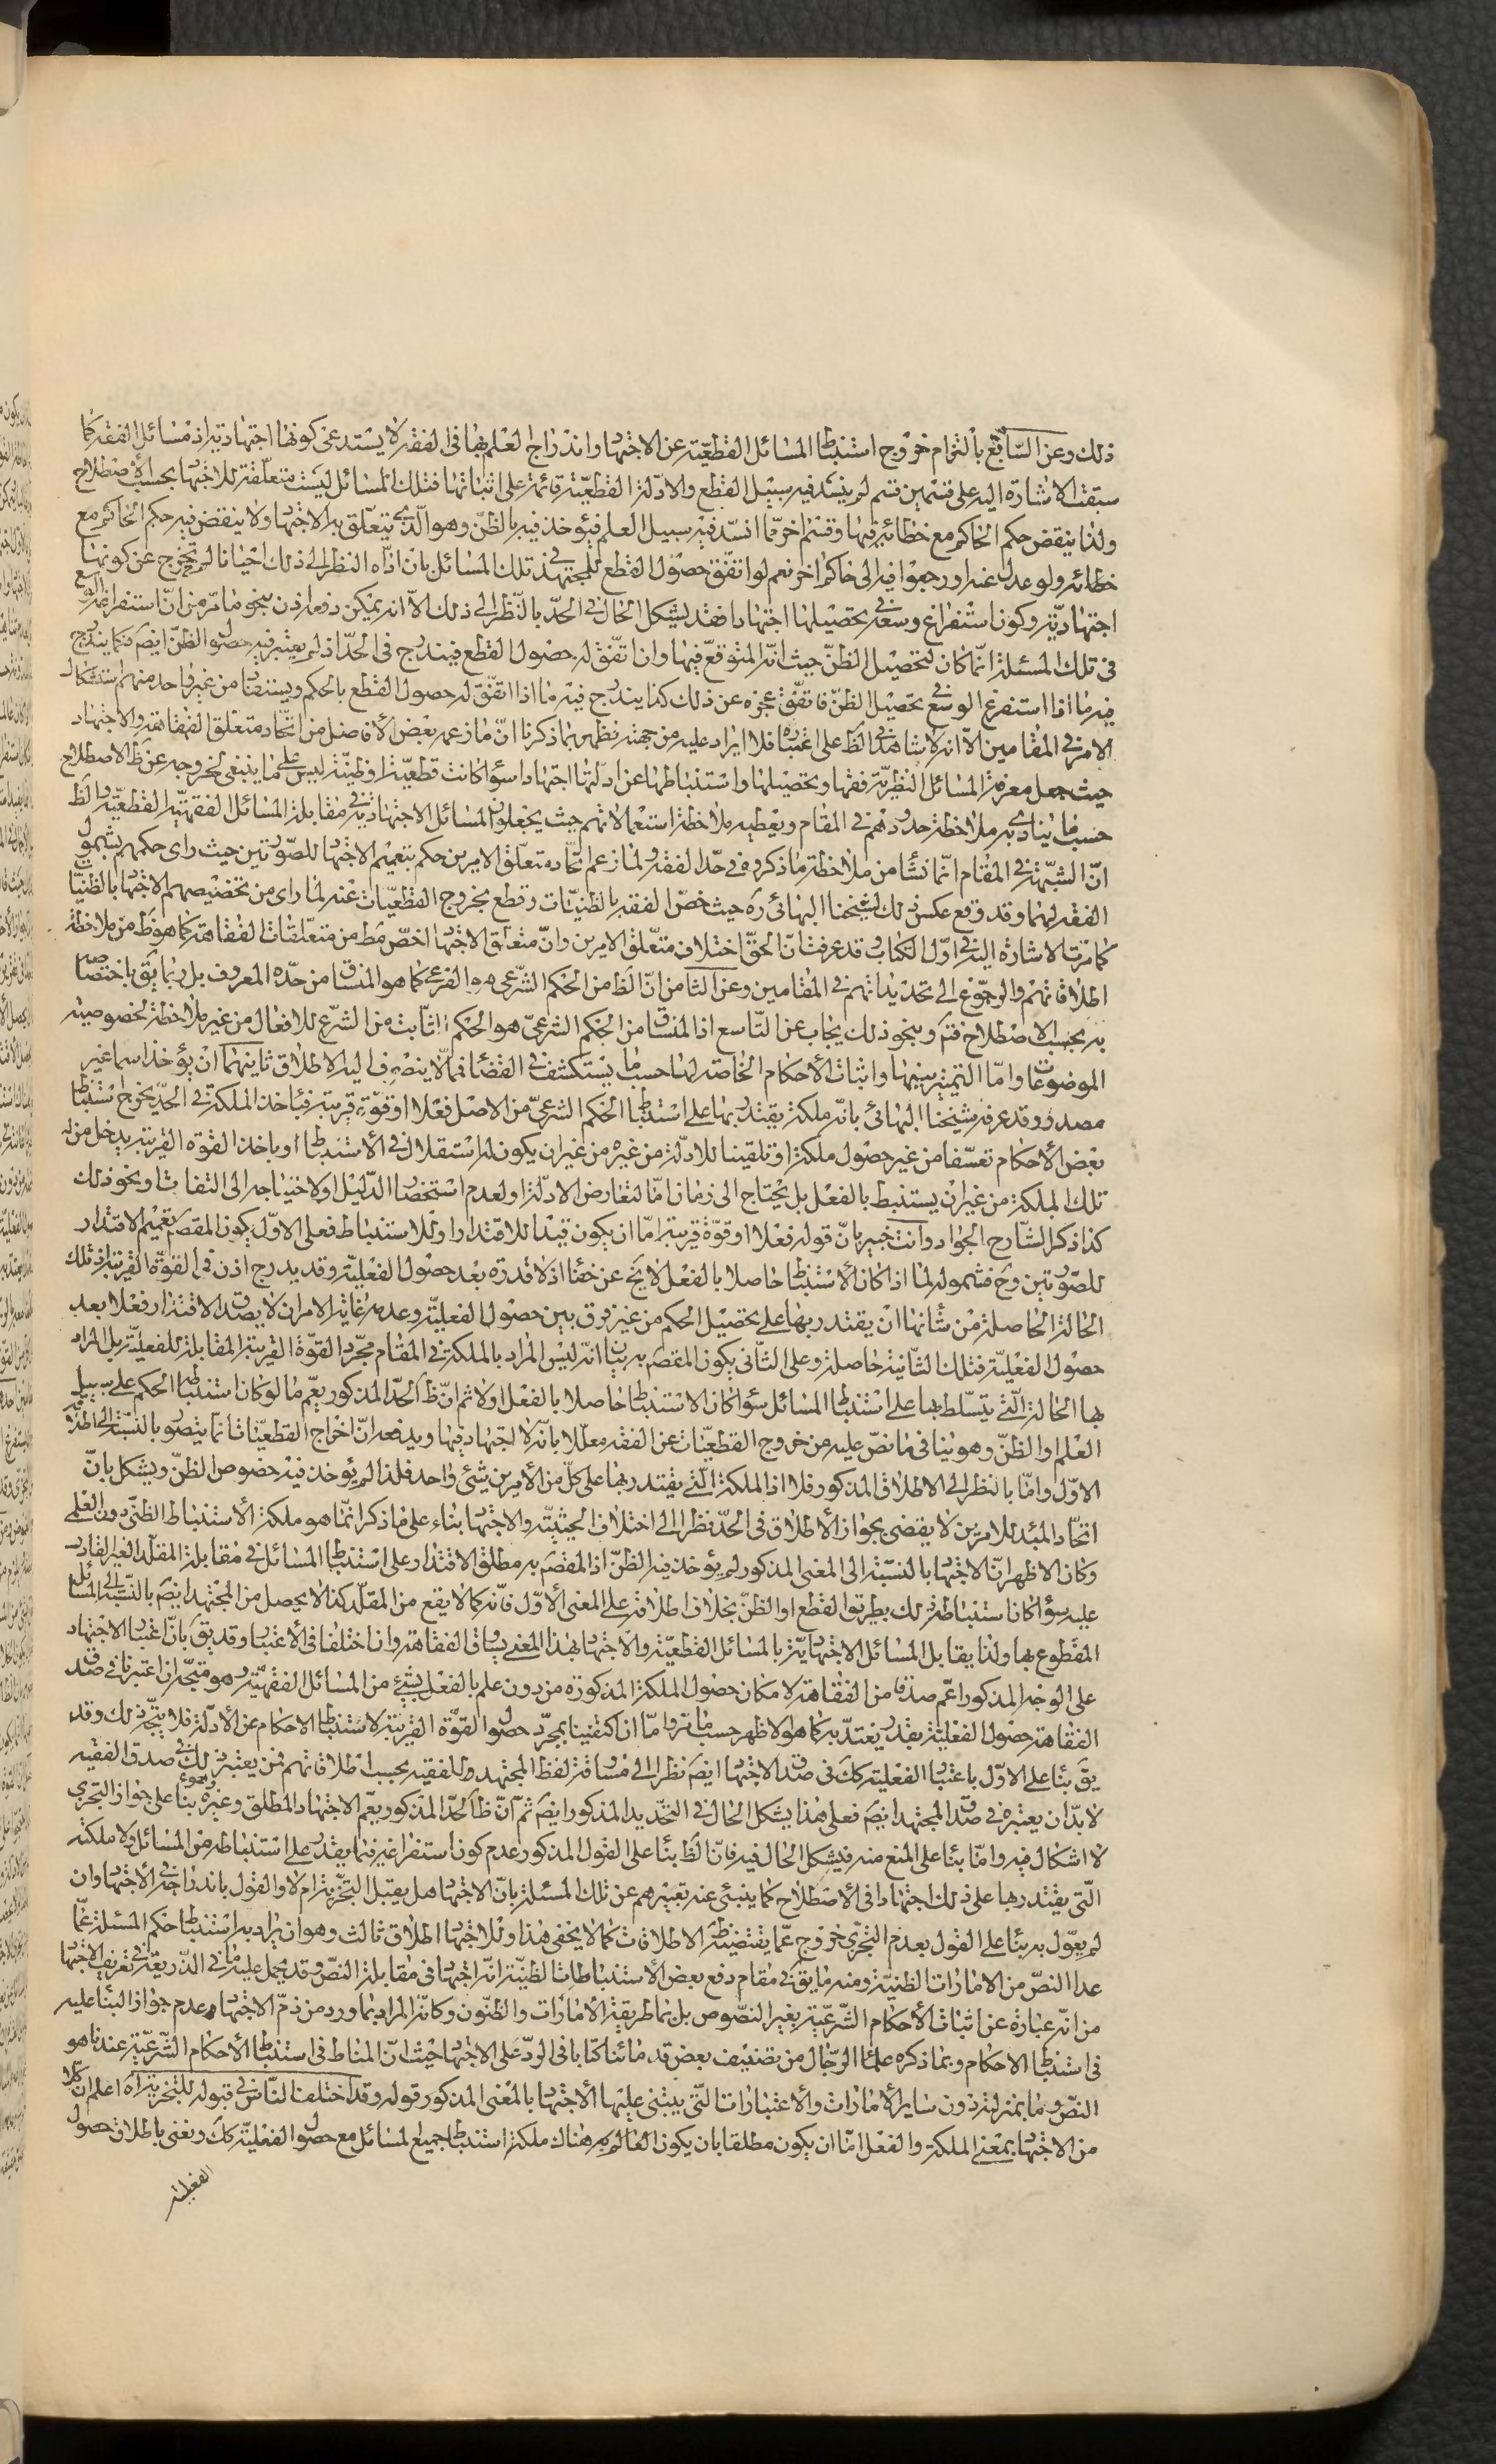 ذلك وعن السّابع بالتزام خروج استنباط المسائل القطعيّة عن الاجتهاد واندراج العلم بها فى الفقه لا يستدعى كونها اجتهاديّة اذ مسائل الفقه كما
سبقت الاشارة اليه على قسمين قسم لم ينسد فيه سبيل القطع والادلة القطعيّة قائمة على اثباتها فتلك المسائل ليست متعلّقة للاجتهاد بحسب الاصطلاح
ولذا ينقض حكم الحاكم مع خطائه فيها وقسم اخر مما انسدّ فيه سبيل العلم فيؤخذ فيه بالظنّ وهو الّذى يتعلّق به الاجتهاد ولا ينقض فيه حكم الحاكم مع
خطائه ولو عدل عنه او رجعوا فيه الى حاكم اخر نعم لو اتفق حصول القطع للمجتهد فى تلك المسائل بان ادّاه النظر الى ذلك احيانا لم تخرج عن كونها
اجتهاديّة وكون استفراغ وسعه فى تحصيلها اجتهادا فقد يشكل الحال فى الحدّ بالنّظر الى ذلك الّا انه يمكن دفعه اذن بنحو ما مرّ من انّ استفراغه الوسع
فى تلك المسئلة انّما كان لتحصيل الظنّ حيث انّه المتوقع فيها وان اتّفق له حصول القطع فيندرج فى الحدّ اذ لم يعتبر فيه حصول الظنّ ايضا فكما يندرج
فيه ما اذا استفرغ الوسع فى تحصيل الظنّ فاتّفق عجزه عن ذلك كذا يندرج فيه ما اذا اتّفق له حصول القطع بالحكم ويستفاد من غير واحد منهم استشكال
الامر فى المقامين الّا انه لا شاهد فى الظ على اعتباره فلا ايراد عليه من جهته فظهر بما ذكرنا انّ ما زعمه بعض الأفاضل من اتّحاد متعلق الفقاهة والاجتهاد
حيث جعل معرفة المسائل النظريّة فقها وتحصيلها واستنباطها عن ادلّتها اجتهادا سواء كانت قطعيّة او ظنّية ليس على ما ينبغى لخروجه عن ظ الاصطلاح
حسبما ينادى به ملاحظة حدودهم فى المقام ويعطيه ملاحظة استعمالاتهم حيث يجعلون المسائل الاجتهاديّة فى مقابلة المسائل الفقهيّة القطعيّة والظ
انّ الشبهة فى المقام انّما نشا من ملاحظة ما ذكروه فى حدّ الفقه ولما زعم اتّحاد متعلّق الامرين حكم بتعميم الاجتهاد للصّورتين حيث راى حكمهم بشمول
الفقه لهما وقد وقع عكس ذلك لشيخنا البهائى ره حيث خصّ الفقه بالظنيّات وقطع بخروج القطعيّات عنه لما راى من تخصيصهم الاجتهاد بالظنيّات
كما مرّت الاشارة اليه فى اوّل الكتاب وقد عرفت انّ الحقّ اختلاف متعلّق الامرين وانّ متعلّق الاجتهاد اخصّ مط من متعلّقات الفقاهة كما هو ظ من ملاحظة
اطلاقاتهم والرجوع الى تحديداتهم فى المقامين وعن الثامن انّ الظ من الحكم الشّرعى هو الفرعى كما هو المنساق من حدّه المعروف بل ربما يق باختصاصه
به بحسب الاصطلاح فتم وبنحو ذلك يجاب عن التّاسع اذ المنساق من الحكم الشرعىّ هو الحكم الثّابت من الشرع للافعال من غير ملاحظة لخصوصية
الموضوعات وامّا التميز بينها واثبات الأحكام الخاصّة لها حسبما يستكشف فى القضاء فممّا لا ينصرف اليه الاطلاق ثانيهما ان يؤخذ اسما غير
مصدر وقد عرفه شيخنا البهائى بانّه ملكة يقتدر بها على استنباط الحكم الشرعىّ من الاصل فعلا او قوّة قريبة فباخذ الملكة فى الحدّ يخرج استنباط
بعض الأحكام تعسّفا من غير حصول ملكة او تلقينا للادلّة من غيره من غير ان يكون له استقلال فى الأستنباط او باخذ القوّة القريبة يدخل من له
تلك الملكة من غير ان يستنبط بالفعل بل يحتاج الى زمان امّا لتعارض الادلّة او لعدم استحضار الدّليل او لاحتياجه الى التفات او نحو ذلك
كذا ذكر الشّارح الجواد وانت خبير بانّ قوله فعلا او قوّة قريبة امّا ان يكون قيدا للاقتدار او للاستنباط فعلى الاوّل يكون المقصد تعميم الاقتدار
للصّورتين وح فشموله لما اذا كان الأستنباط حاصلا بالفعل لا يخ عن خفاء اذ لا قدرة بعد حصول الفعليّة وقد يدرج اذن فى القوّة القريبة اذ تلك
الحالة الحاصلة من شانها ان يقتدر بها على تحصيل الحكم من غير فرق بين حصول الفعليّة وعدمه غاية الامر ان لا يصدق الاقتدار فعلا بعد
حصول الفعليّة فتلك الشّانيّة حاصلة وعلى الثّانى يكون المقصد به بيان انّه ليس المراد بالملكة فى المقام مجرّد القوّة القريبة المقابلة للفعليّة بل المراد
بها الحالة الّتى يتسلّط بها على استنباط المسائل سواء كان الاستنباط حاصلا بالفعل او لا ثم انّ ظ الحدّ المذكور يعّم ما لو كان استنباط الحكم على سبيل
العلم او الظنّ وهو ينافى ما نصّ عليه من خروج القطعيّات عن الفقه معلّلا بانّه لا اجتهاد فيها ويدفعه انّ اخراج القطعيّات انّما يتصوّر بالنّسبة الى اطلاقه
الاوّل وامّا بالنظر الى الاطلاق المذكور فلا اذ الملكة الّتى يقتدر بها على كلّ من الأمرين شئ واحد فلذا لم يؤخذ فيه خصوص الظنّ ويشكل بانّ
اتحاد المبدء للامرين لا يقضى بجواز الأطلاق فى الحدّ نظرا الى اختلاف الحيثيّة والاجتهاد بناء على ما ذكر انّما هو ملكة الأستنباط الظنّى دون العلمى
وكان الاظهر انّ الاجتهاد بالنسبة الى المعنى المذكور لم يؤخذ فيه الظنّ اذ المقصد به مطلق الاقتدار على استنباط المسائل فى مقابلة المقلّد الغير القادر
عليه سواء كان استنباطه ذلك بطريق القطع او الظنّ بخلاف اطلاقه على المعنى الأوّل فانّه كما لا يقع من المقلّد كذا لا يحصل من المجتهد ايضا بالنّسبة الى المسائل
المقطوع بها ولذا يقابل المسائل الاجتهاديّة بالمسائل القطعيّة والاجتهاد بهذا المعنى يساوق الفقاهة وان اختلفا فى الأعتبار وقد يق بانّ اعتبار الاجتهاد
على الوجه المذكور اعّم صدقا من الفقاهة لامكان حصول الملكة المذكورة من دون علم بالفعل بشئ من المسائل الفقهيّة وهو متجّه ان اعتبرنا فى صدق
الفقاهة حصول الفعليّة بقدر يعتدّ به كما هو الاظهر حسبما مرّ وامّا ان اكتفينا بمجرّد حصول القوّة القريبة لاستنباط الاحكام عن الأدلّة فلا يتّجه ذلك وقد
يق بناء على الاوّل باعتبار الفعليّة كك فى صدق الاجتهاد ايضا نظرا الى مساوقة لفظ المجتهد وللفقيه بحسب اطلاقاتهم فمن يعتبر ذلك فى صدق الفقيه
لا بدّ ان يعتبره فى صدق المجتهد ايضا فعلى هذا يشكل الحال فى التحديد المذكور ايضا ثم انّ ظ الحدّ المذكور يعّم الاجتهاد المطلق وغيره بناء على جواز التجزى
لا اشكال فيه وامّا بناء على المنع منه فيشكل الحال فيه فانّ الظ بناء على القول المذكور عدم كون استفراغه فيما يقدر على استنباطه من المسائل ولا ملكته
الّتى يقتدر بها على ذلك اجتهادا فى الأصطلاح كما ينبئ عنه تعبيرهم عن تلك المسئلة بانّ الاجتهاد هل يقبل التجزية ام لا والقول باندراجه فى الأجتهاد وان
لم يعوّل به بناء على القول بعدم التجزى خروج عمّا يقتضيه ظ الاطلاقات كما لا يخفى هذا وللاجتهاد اطلاق ثالث وهو ان يراد به استنباط حكم المسئلة عمّا
عدا النصّ من الامارات الظنيّة ومنه ما يق فى مقام دفع بعض الأستنباطات الظنيّة انّه اجتهاد فى مقابلة النصّ وقد يحمل عليه ما فى الذّريعة فى تعريف الاجتهاد
من انّه عبارة عن اثبات الأحكام الشّرعيّة بغير النّصوص بل بما طريقه الأمارات والظنّون وكانّه المراد بما ورد من ذمّ الاجتهاد وعدم جواز البناء عليه
فى استنباط الاحكام وبما ذكره علماء الرّجال من تصنيف بعض قدمائنا كتابا فى الردّ على الاجتهاد حيث انّ المناط فى استنباط الأحكام الشّرعيّة عندنا هو
النصّ وما بمنزلته دون ساير الأمارات والأعتبارات التّى يبتنى عليها الأجتهاد بالمعنى المذكور قوله وقد اختلف النّاس فى قبوله للتجزية آه اعلم ان كلا
من الاجتهاد بمعنى الملكة والفعل امّا ان يكون مطلقا بان يكون العالم به هناك ملكة استنباط جميع المسائل مع حصول الفعليّة كك ونعنى باطلاق حصول
الفعليّة